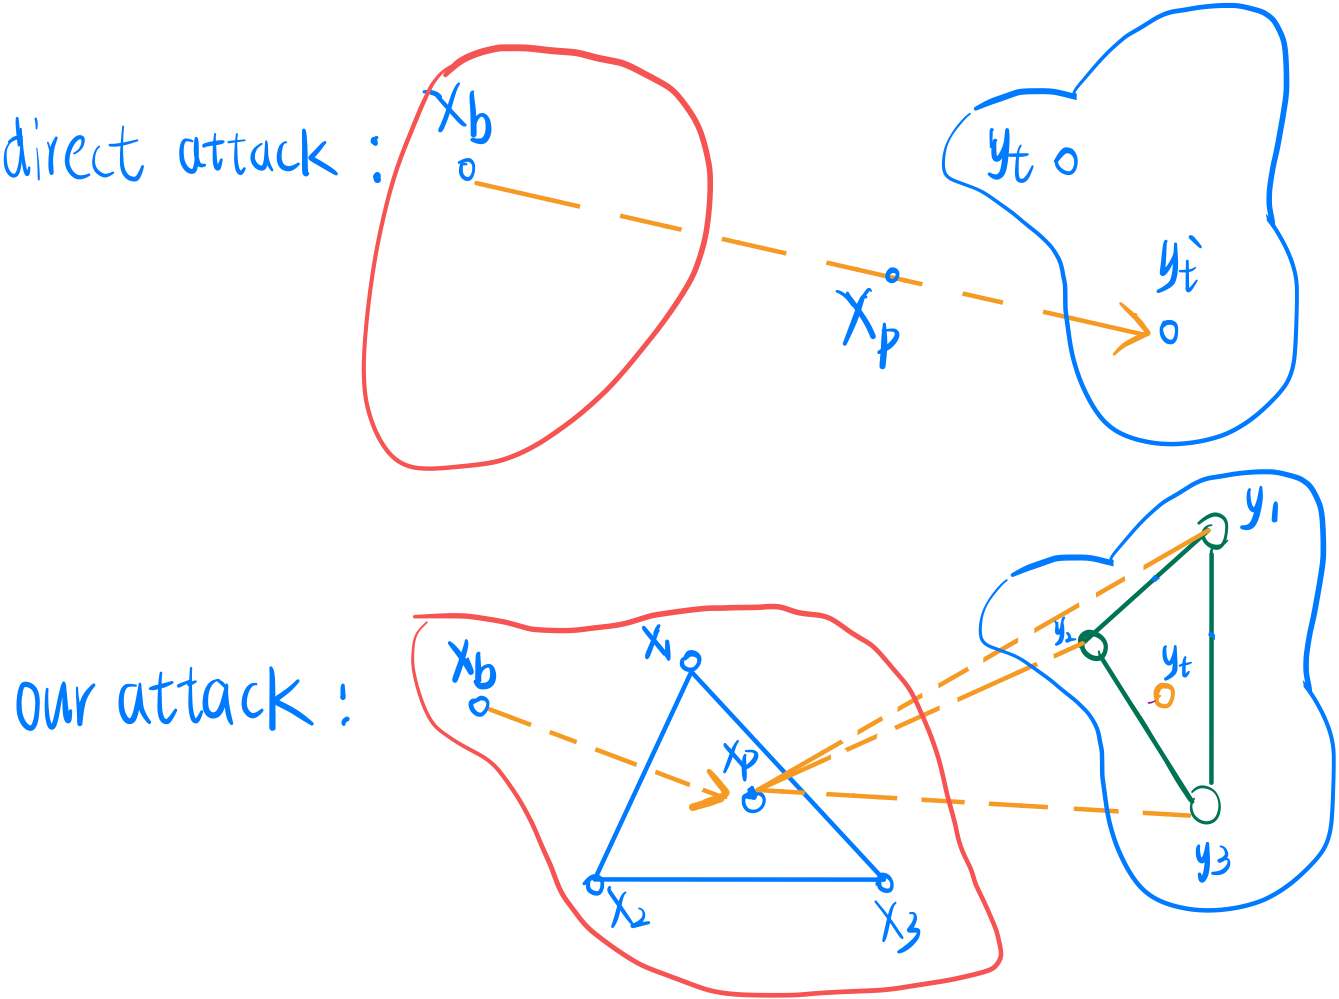 direct attack :
Xb
yt
yt`
Xp
our attack :
Xb
X1
Xp
X2
X3
y1
y2
yt
y3